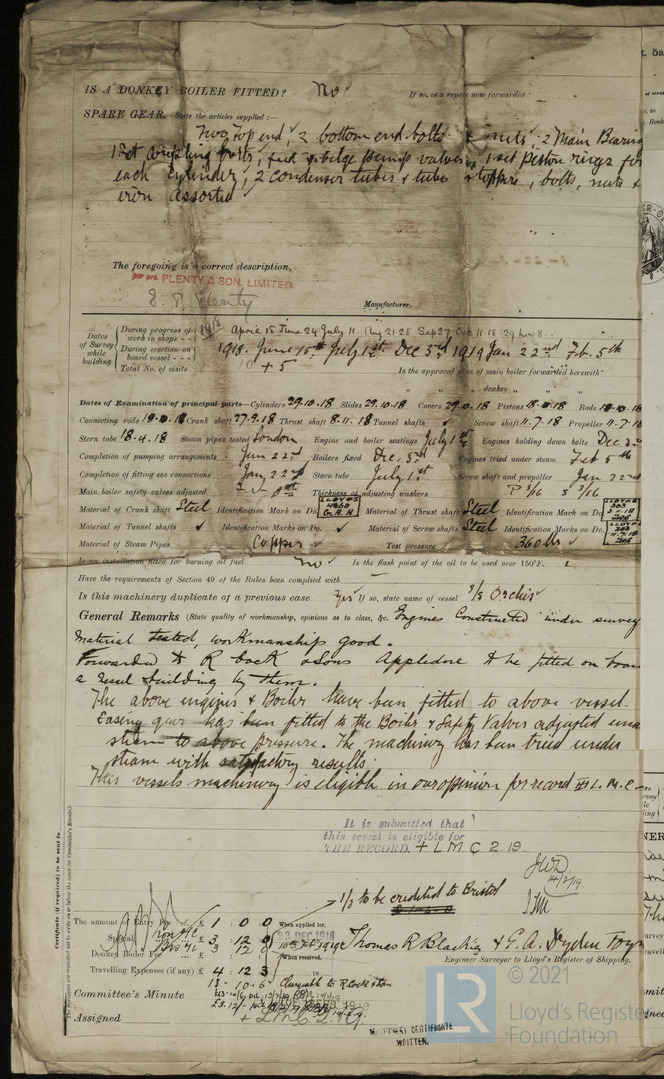 IS A DONKEY BOILER FITTED? No If so, is a report now forwarded?
SPARE GEAR. State the articles supplied:—
Two top end, 2 bottom end bolts & nuts, 2 Main Bearing
1 set coupling bolts, feed & bilge pump valves, 1 set piston rings for
each cylinder, 2 condenser tubes & tube stoppers, bolts, nuts &
iron assorted
The foregoing is a correct description,
PLENTY & SON, LIMITED
Plenty Manufacturer.
Dates of Survey while building
During progress of work in shops - - 1918 April 15 June 24 July 11 Aug 21.25 Sep 27 Oct 11.18.29 Nov 8
During erection on board vessel - - - 1918. June 15th July 1st Dec 3rd 1919 Jan 22nd Feb. 5th
Total No. of visits 10 + 5 Is the approved plan of main boiler forwarded herewith
" " " donkey " " "
Dates of Examination of principal parts—Cylinders 29.10.18 Slides 29.10.18 Covers 29.10.18 Pistons 18.10.18 Rods 18.10.18
Connecting rods 18.10.18 Crank shaft 27.9.18 Thrust shaft 8.11.18 Tunnel shafts ✓ Screw shaft 11.7.18 Propeller 11.7.18
Stern tube 18.4.18 Steam pipes tested London Engine and boiler seatings July 1st Engines holding down bolts Dec 3rd
Completion of pumping arrangements Jan 22nd Boilers fixed Dec. 3rd Engines tried under steam Feb 5th
Completion of fitting sea connections Jan 22nd Stern tube July 1st Screw shaft and propeller Jan 22nd
Main boiler safety valves adjusted Thickness of adjusting washers P 5/16 S 3/16
Material of Crank shaft Steel Identification Mark on Do. LLOYDS Material of Thrust shaft Steel Identification Mark on Do. LLOYDS 303
Material of Tunnel shafts ✓ Identification Marks on Do. ✓ Material of Screw shafts Steel Identification Marks on Do. LLOYDS 303 11.7.18
Material of Steam Pipes Copper ✓ Test pressure 360 lbs ✓
Is an installation fitted for burning oil fuel no ✓ Is the flash point of the oil to be used over 150°F.
Have the requirements of Section 49 of the Rules been complied with —
Is this machinery duplicate of a previous case Yes If so, state name of vessel S/S Orchis
General Remarks (State quality of workmanship, opinions as to class, &c. Engines Constructed under survey
Material tested, workmanship good.
Forwarded to R Cock & Sons Appledore to be fitted on board
a vessel building by them.
The above engines & Boiler have been fitted to above vessel.
Easing gear has been fitted to the Boiler & Safety Valves adjusted under
steam to above pressure. The machinery has been tried under
steam with satisfactory results.
This vessels machinery is eligible in our opinion for record L.M.C
It is submitted that
this vessel is eligible for
THE RECORD. + LMC 2.19.
14/2/19
1/2 to be credited to Bristol
The amount of Entry Fee .. £ 1 : 0 : 0 When applied for,
Special .. £ 3 : 12 : 0 23 DEC 1918
3 : 12 : 0
Donkey Boiler Fee .. £
When received,
Travelling Expenses (if any) £ 4 : 12 : 3
13 - 10 - 6
Thomas R Blackie & G. A. Dryden
Engineer Surveyor to Lloyd's Register of Shipping.
Committee's Minute
Assigned + LMC 2.19.
MACHINERY CERTIFICATE
WRITTEN.
Certificate (if required) to be sent to
LR
© 2021
Lloyd's Register
Foundation